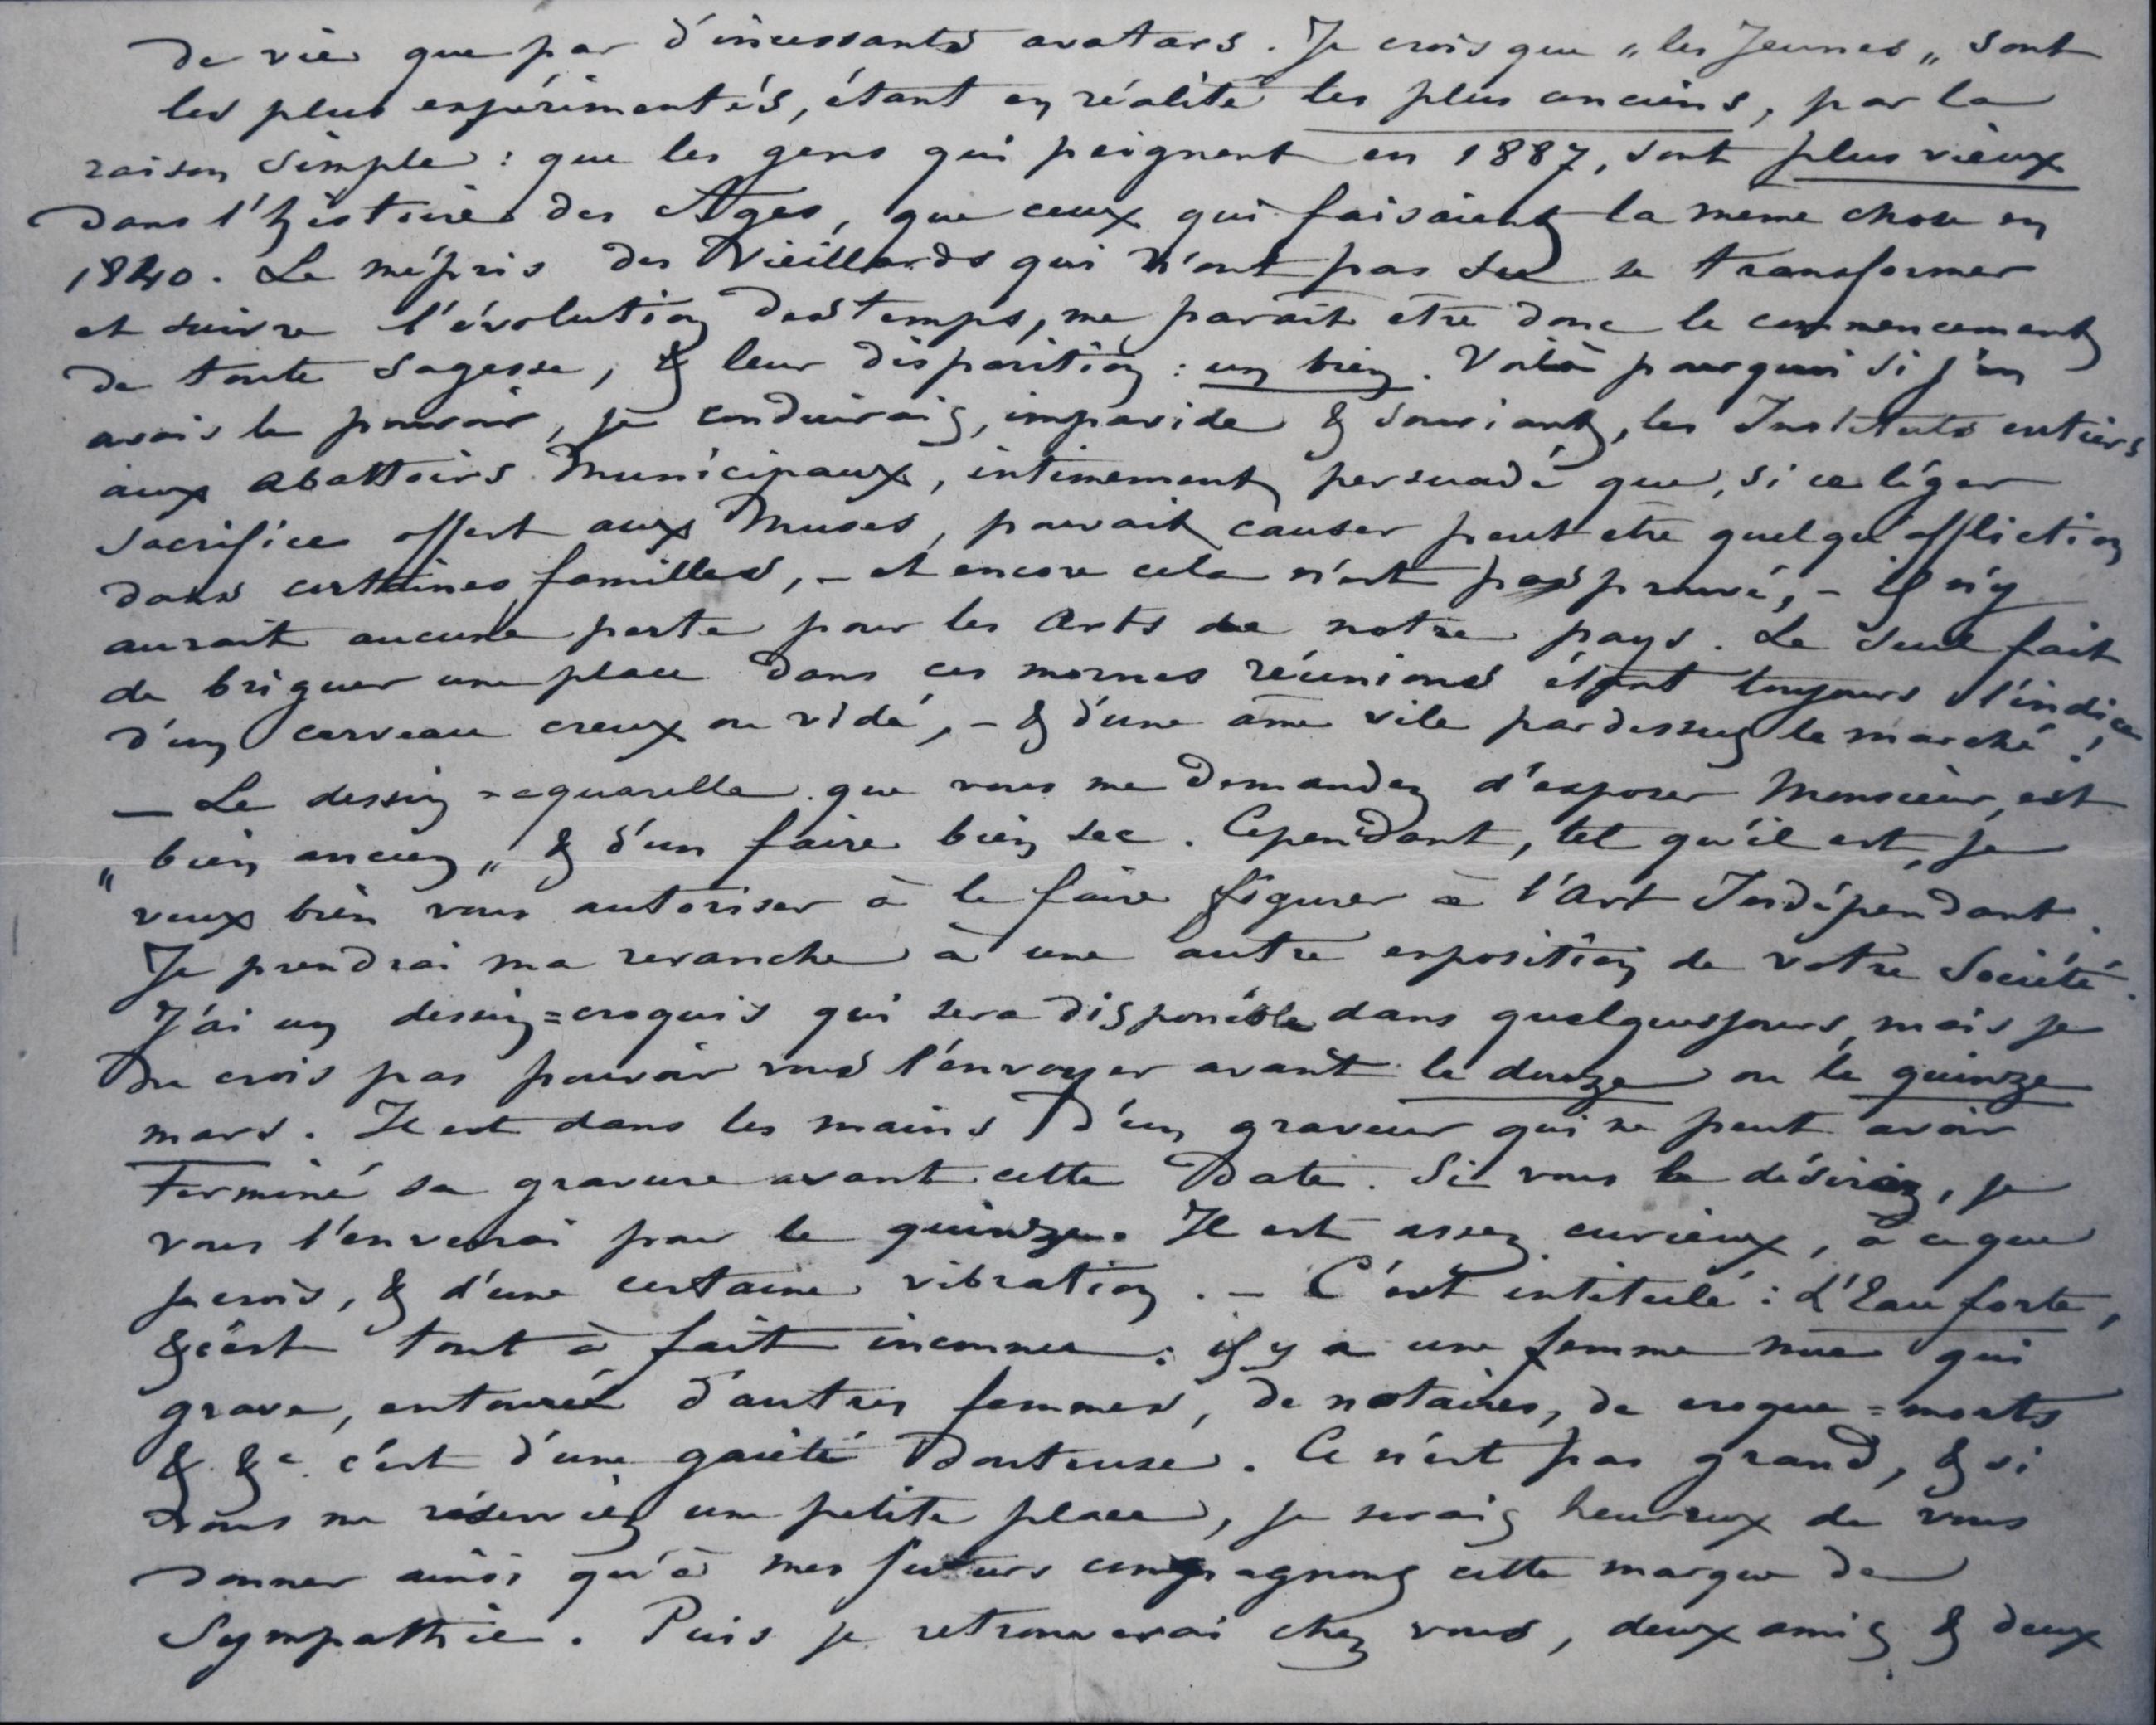 de vie que par d'incessants avatars. Je crois que „les Jeunes„ sont
les plus expérimentés, étant en réalité les plus anciens, par la
raison simple : que les gens qui peignent en 1887, sont plus vieux
dans l'histoire des Ages, que ceux qui faisaient la meme chose en
1840. Le mépris des Vieillards qui n'ont pas su se transformer
et suivre l'évolution des temps, me parait etre donc le commencement
de toute sagesse, & leur disparition : un bien. Voilà pourquoi si j'en
avais le pouvoir, je conduirais, impavide & souriant, les Instituts entiers
aux abattoirs Municipaux, intimement persuadé que, si ce léger
sacrifice offert aux Muses, pouvait causer peut etre quelqu'affliction
dans certaines familles, – et encore cela n'est pas prouvé, – il n'y
aurait aucune perte pour les Arts de notre pays. Le seul fait
de briguer une place dans ces mornes réunions étant toujours l'indice
d'un cerveau creux ou vidé, – & d'une âme vile pardessus le marché !
— Le dessin=aquarelle que vous me demandez d'exposer Monsieur, est
„bien ancien„ & d'un faire bien sec. Cependant, tel qu'il est, je
veux bien vous autoriser à le faire figurer à l'Art Indépendant.
Je prendrai ma revanche à une autre exposition de votre Société.
J'ai un dessin=croquis qui sera disponible dans quelques jours, mais je
ne crois pas pouvoir vous l'envoyer avant le douze ou le quinze
mars. Il est dans les mains d'un graveur qui ne peut avoir
terminé sa gravure avant cette date. Si vous le désirez, je
vous l'enverrai pour le quinze. Il est assez curieux, à ce que
je crois, & d'une certaine vibration. – C'est intitulé : L'Eau forte,
& c'est tout à fait inconnu : il y a une femme nue qui
grave, entourée d'autres femmes, de notaires, de croque=morts
& &c. c'est d'une gaieté douteuse. Ce n'est pas grand, & si
vous me réserviez une petite place, je serais heureux de vous
donner ainsi qu'à mes futurs compagnons cette marque de
Sympathie. Puis je retrouverai chez vous, deux amis & deux